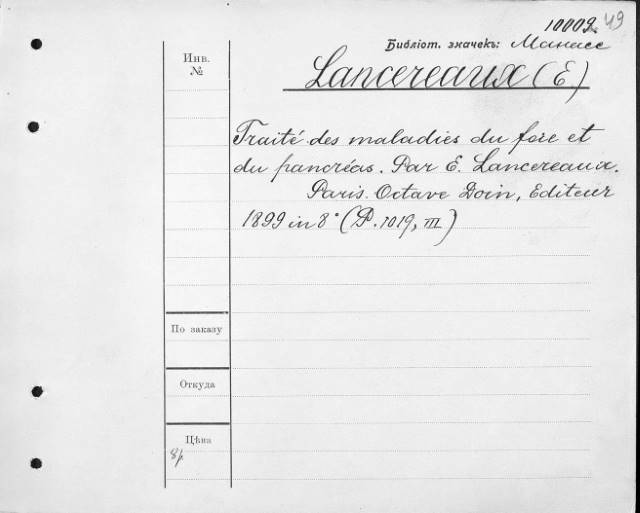 10009. 49
Библіот. значекъ: Манасс
Инв.
№
Lancereaux (E.)
Traité des maladies du foie et
du pancréas. Par E. Lancereaux.
Paris. Octave Doin, Editeur
1899 in 8° (P. 1019, III)
По заказу
Откуда
Цѣна